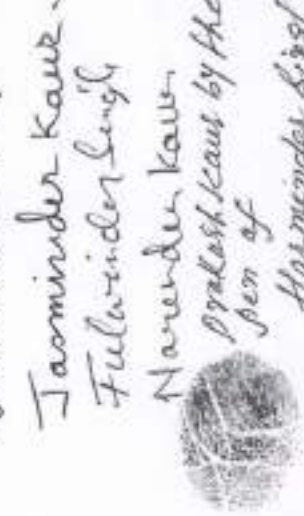 Jasminder Kaur.
Fulwinder Singh
Narender Kaur
Prakash Kaur by the
pen of
Harminder Singh